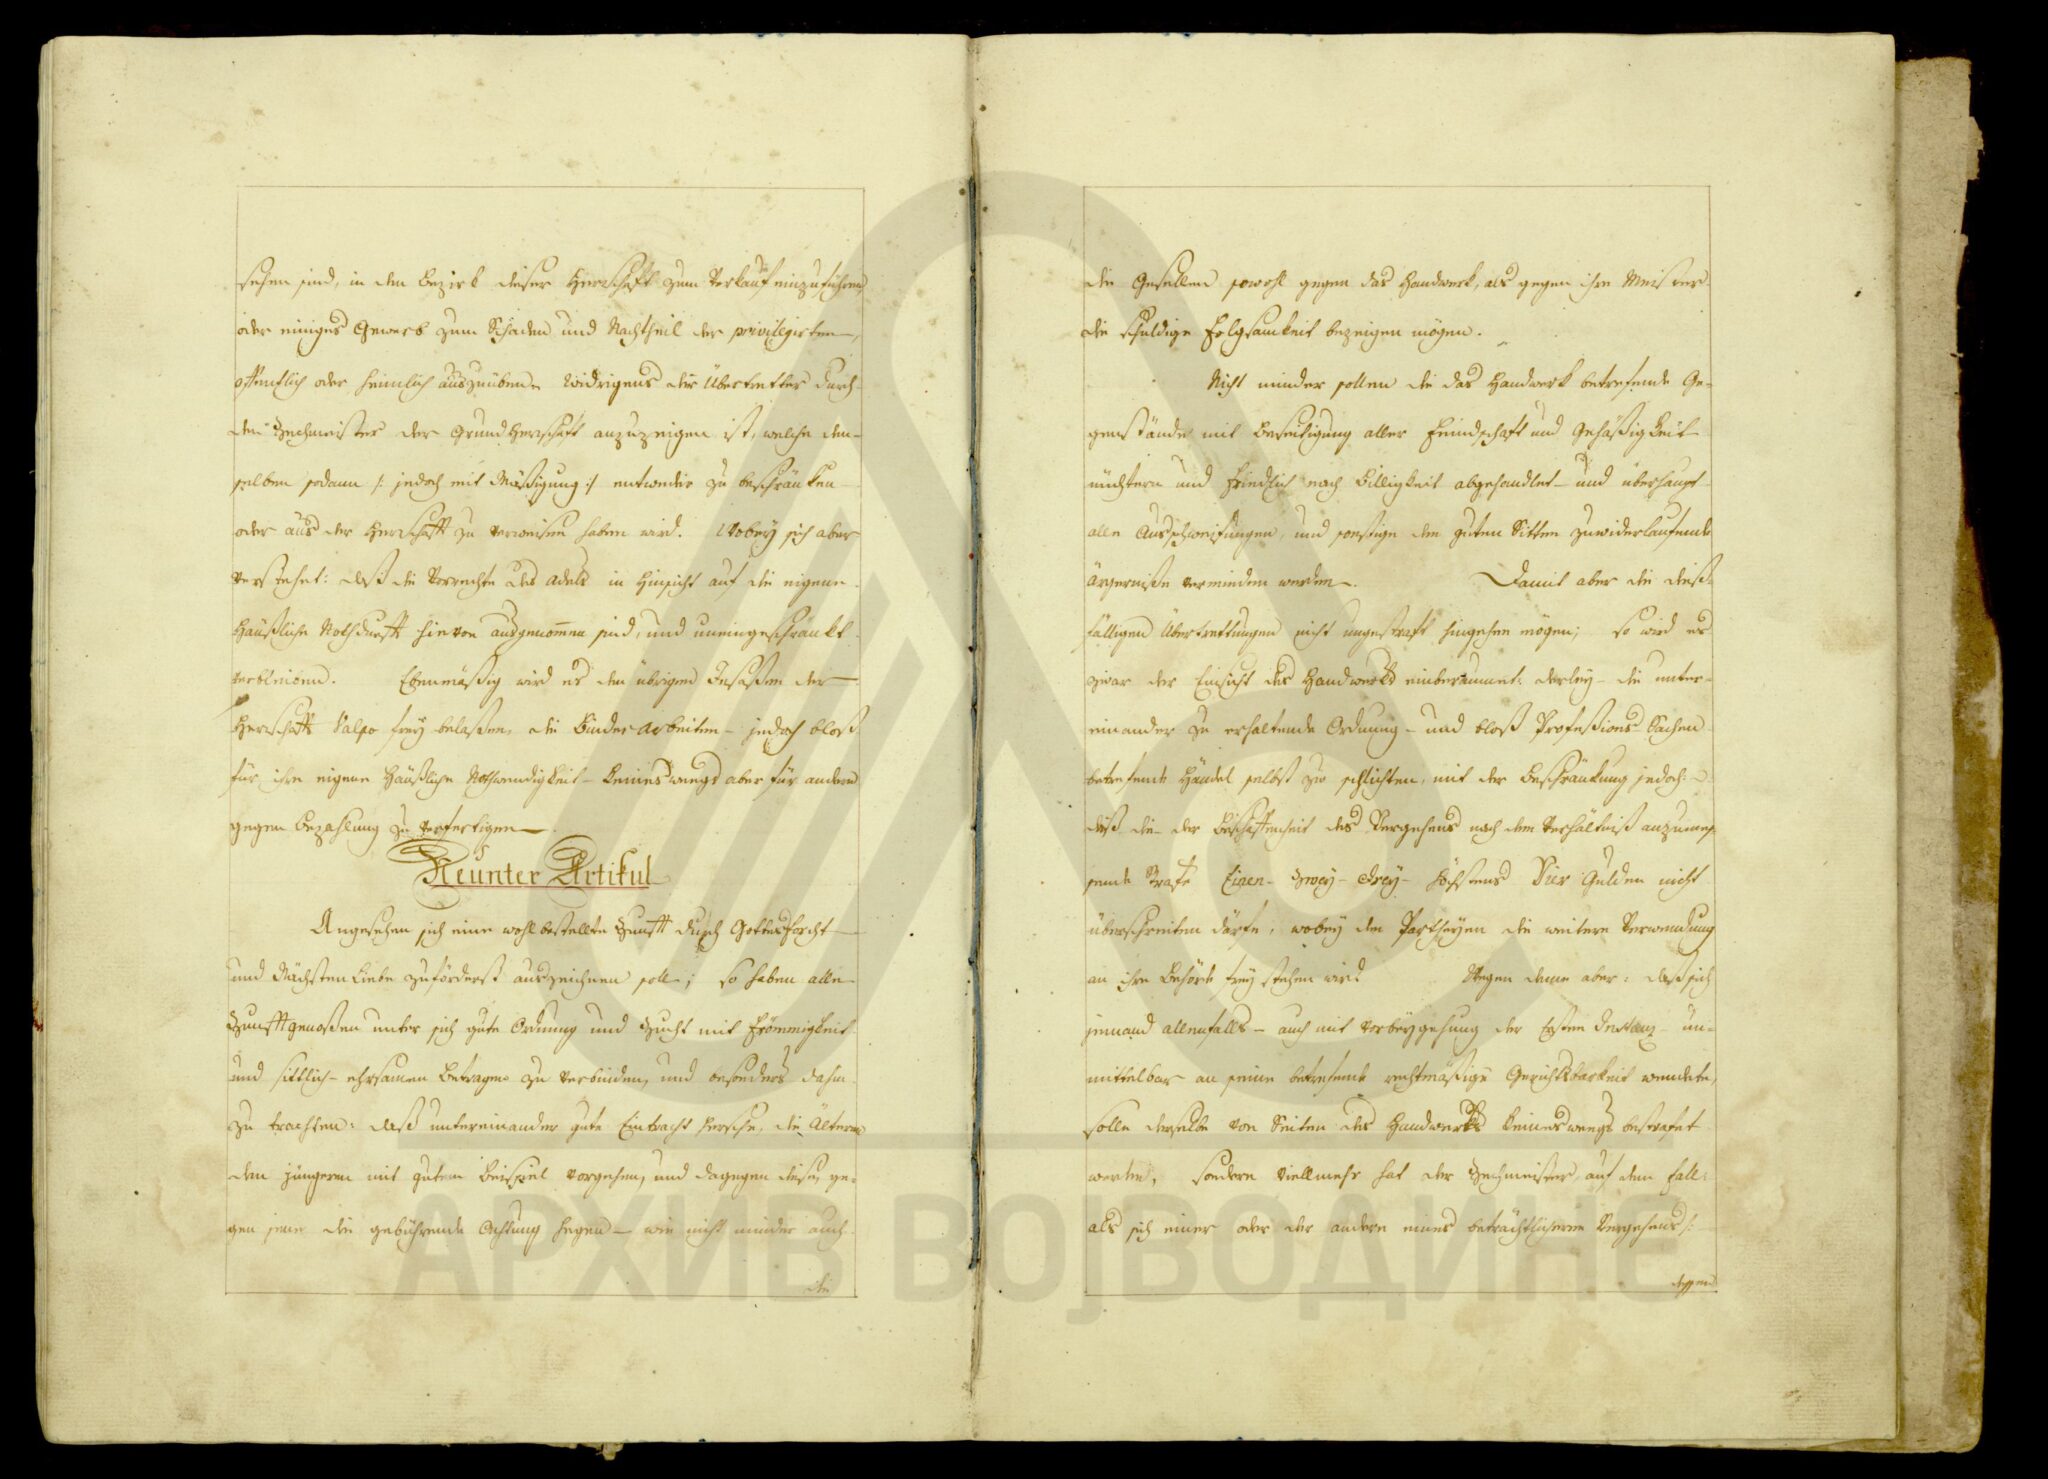 sehen sind, in den Bezirk dieser Herrschaft zum Verkauf einzuführen,
oder einiges Gewerb zum Schaden und Nachtheil der privilegirten,
offentlich oder heimlich auszuüben. Widrigens der Übertretter durch
den Zechmeister der Grundherrschaft anzuzeigen ist, welche den-
selben sodann /: jedoch mit Mäßigung :/ entweder zu beschränken
oder aus der Herrschafft zu verweisen haben wird. Wobey sich aber
verstehet: daß die Vorrechte des Adels in Hinsicht auf die eigene
Häußliche Nothdurfft hievon ausgenom̄en sind, und uneingeschränkt
verbleiben. Ebenmäßig wird es den übrigen Insaßen der
Herrschafft Valpo frey belaßen, die Binder Arbeiten - jedoch bloß
für ihre eigene Häußliche Nothwendigkeit - keineswegs aber für andere
gegen Bezahlung zu verfertigen.
Neunter Artikul
Angesehen sich eine wohl bestellte Zunfft durch Gottesforcht
und Nächsten Liebe zuförderst auszeichnen soll; so haben alle
Zunfftgenoßen unter sich gute Ordnung und Zucht mit Frömmigkeit
und sittlich - ehrsamen Betragen zu verbinden, und besonders dahin
zu trachten: daß untereinander gute Eintracht hersche, die Älteren
den jüngeren mit gutem Beispiel vorgehen, und dagegen diese, ge-
gen jene die gebührende Achtung hegen - wie nicht minder auch
die
die Gesellen sowohl gegen das Handwerk, als gegen ihre Meister
die schuldige Folgsamkeit bezeigen mögen.
Nicht minder sollen die das Handwerk betrefende Ge-
genstände mit Beseitigung aller Feindschaft und Gehäßigkeit
nüchtern und friedlich nach Billigkeit abgehandlet - und überhaupt
alle Ausschweifungen, und sonstige den guten Sitten zuwiderlaufende
Ärgerniße vermieden werden. Damit aber die dieß-
fälligen Übertrettungen nicht ungestraft hingehen mögen; so wird es
zwar der Einsicht des Handwerks einberaumet: derley - die unter-
einander zu erhaltende Ordnung - und bloß Profeßions Sachen
betrefende Händel selbst zu schlichten, mit der Beschränkung jedoch:
daß die der Beschaffenheit des Vergehens nach dem Verhältniß anzumes-
sende Strafe Einen - Zwey - Drey - höchstens Vier Gulden nicht
überschreiten därfe, wobey den Partheyen die weitere Verwendung
an ihre Behörde frey stehen wird. Wegen deme aber: daß sich
jemand allenfalls - auch mit Vorbeygehung der Ersten Instanz - un-
mittelbar an seine betrefende rechtmäßige Gerichtsbarkeit wendete,
solle derselbe von Seiten des Handwerks keineswegs bestrafet
werden, sondern viellmehr hat der Zechmeister, auf dem Fall:
als sich einer oder der andere eines beträchtlicheren Vergehens /:
dessen
АРХИВ ВОЈВОДИНЕ